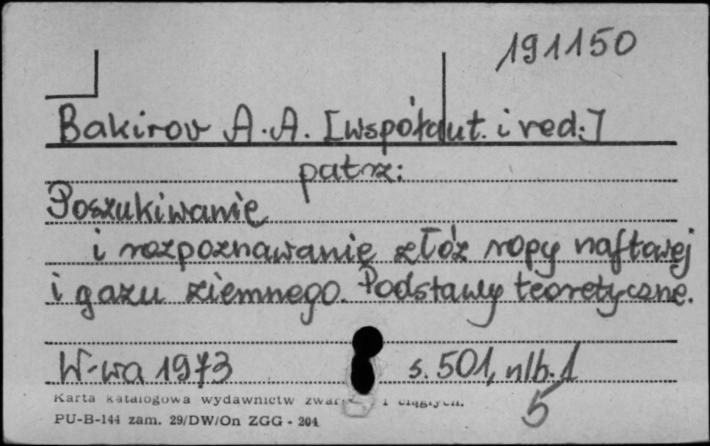 191150
Bakirov A.A. [współaut. i red.]
patrz:
Poszukiwanie
i rozpoznawanie złóż ropy naftowej
i gazu ziemnego. Podstawy teoretyczne.
W-wa 1973 s. 501, nlb. 1
Karta katalogowa wydawnictw i ciągłych.
5
PU-B-144 zam. 29/DW/On ZGG - 204